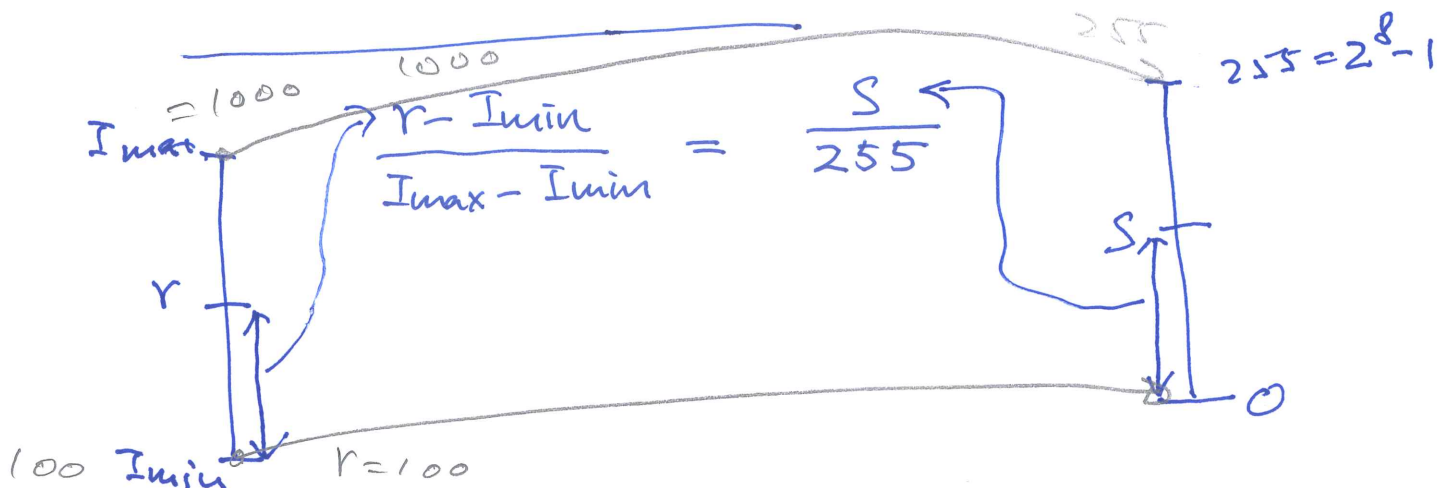 255
255=2^8-1
1000
=1000
Imax
r-Imin
Imax-Imin
=
S
255
S
r
0
100 Imin r=100